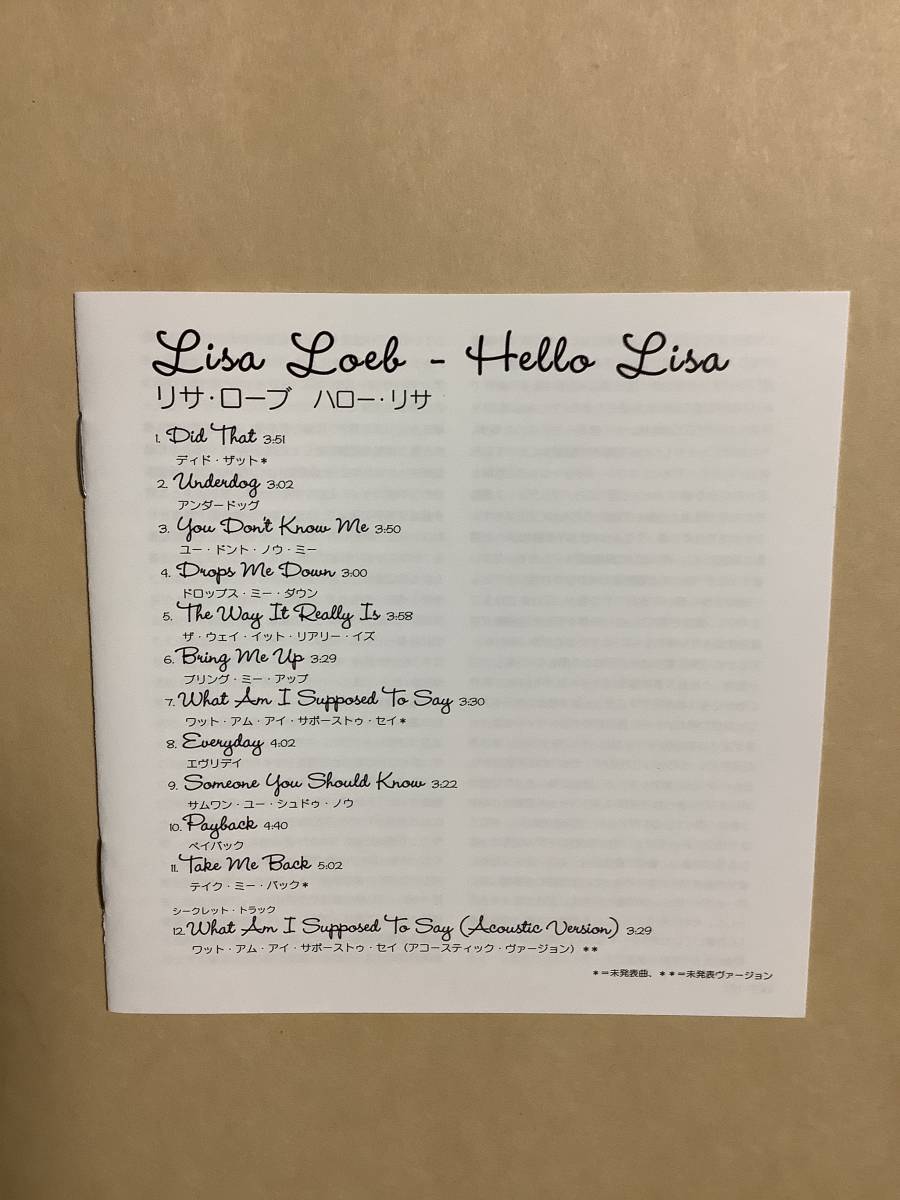 Lisa Loeb - Hello Lisa
リサ・ローブ ハロー・リサ
1. Did That 3:51
ディド・ザット*
2. Underdog 3:02
アンダードッグ
3. You Don't Know Me 3:50
ユー・ドント・ノウ・ミー
4. Drops Me Down 3:00
ドロップス・ミー・ダウン
5. The Way It Really Is 3:58
ザ・ウェイ・イット・リアリー・イズ
6. Bring Me Up 3:29
ブリング・ミー・アップ
7. What Am I Supposed To Say 3:30
ワット・アム・アイ・サポーストゥ・セイ*
8. Everyday 4:02
エヴリデイ
9. Someone You Should Know 3:22
サムワン・ユー・シュドゥ・ノウ
10. Payback 4:40
ペイバック
11. Take Me Back 5:02
テイク・ミー・バック*
シークレット・トラック
12. What Am I Supposed To Say (Acoustic Version) 3:29
ワット・アム・アイ・サポーストゥ・セイ(アコースティック・ヴァージョン)**
*=未発表曲、**=未発表ヴァージョン